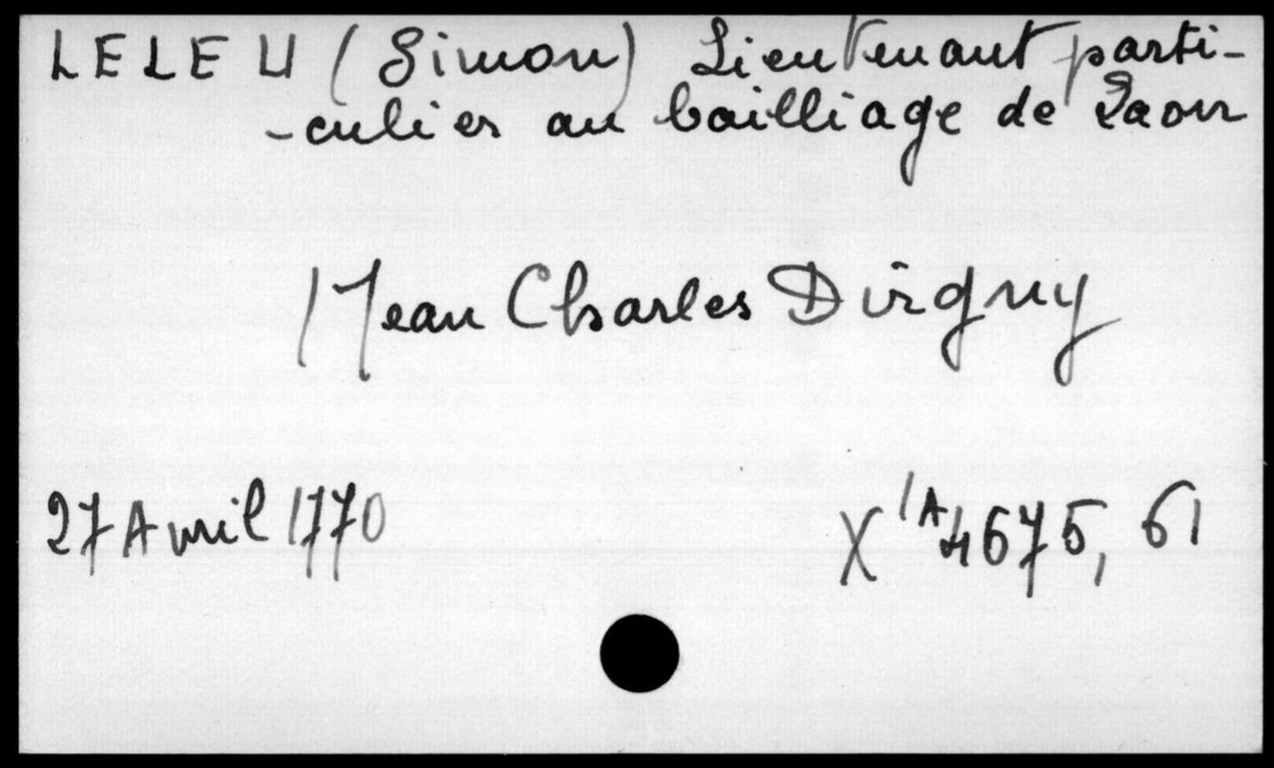 LELEU (Simon) Lieutenant parti-
-culier au bailliage de Laon
/ Jean Charles Dirgny
27 Avril 1770
X 1A 4675, 61